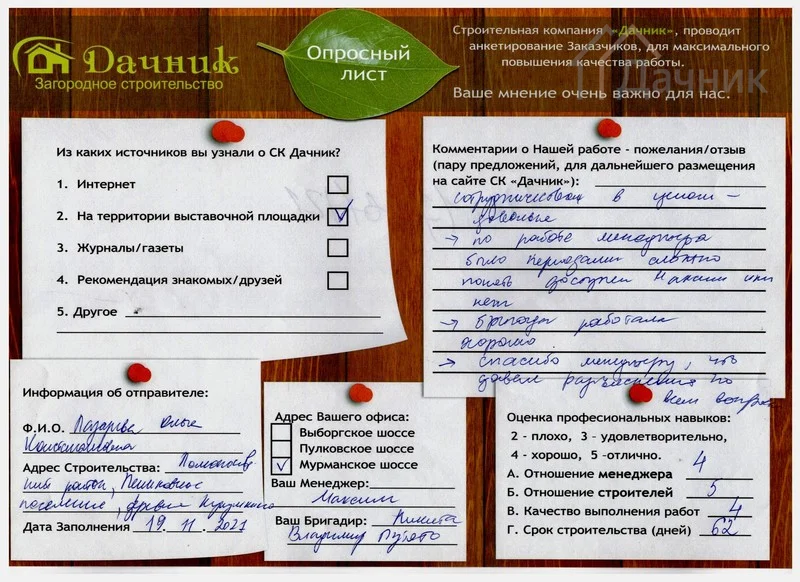 Дачник
Загородное строительство
Опросный
лист
Строительная компания «Дачник», проводит
анкетирование Заказчиков, для максимального
повышения качества работы.
Ваше мнение очень важно для нас.
Дачник
Из каких источников вы узнали о СК Дачник?
1. Интернет
2. На территории выставочной площадки
3. Журналы/газеты
4. Рекомендация знакомых/друзей
5. Другое
Комментарии о Нашей работе - пожелания/отзыв
(пару предложений, для дальнейшего размещения
на сайте СК «Дачник»):
сотрудничеством в целом –
довольны
→ по работе менеджера
было периодами сложно
понять доступен Максим или
нет
→ бригады работали
хорошо.
→ спасибо менеджеру, что
давал разъяснения по
всем вопросам
Информация об отправителе:
Ф.И.О. Лазарева Ольга
Константиновна
Адрес Строительства: Ломоносов
ский район, Пениковское
поселение, деревня
Дата Заполнения 19. 11. 2021
Адрес Вашего офиса:
Выборгское шоссе
Пулковское шоссе
Мурманское шоссе
Ваш Менеджер:
Максим
Ваш Бригадир: Никита
Владимир
Оценка профессиональных навыков:
2 - плохо, 3 - удовлетворительно,
4 - хорошо, 5 -отлично.
А. Отношение менеджера 4
Б. Отношение строителей 5
В. Качество выполнения работ 4
Г. Срок строительства (дней) 62